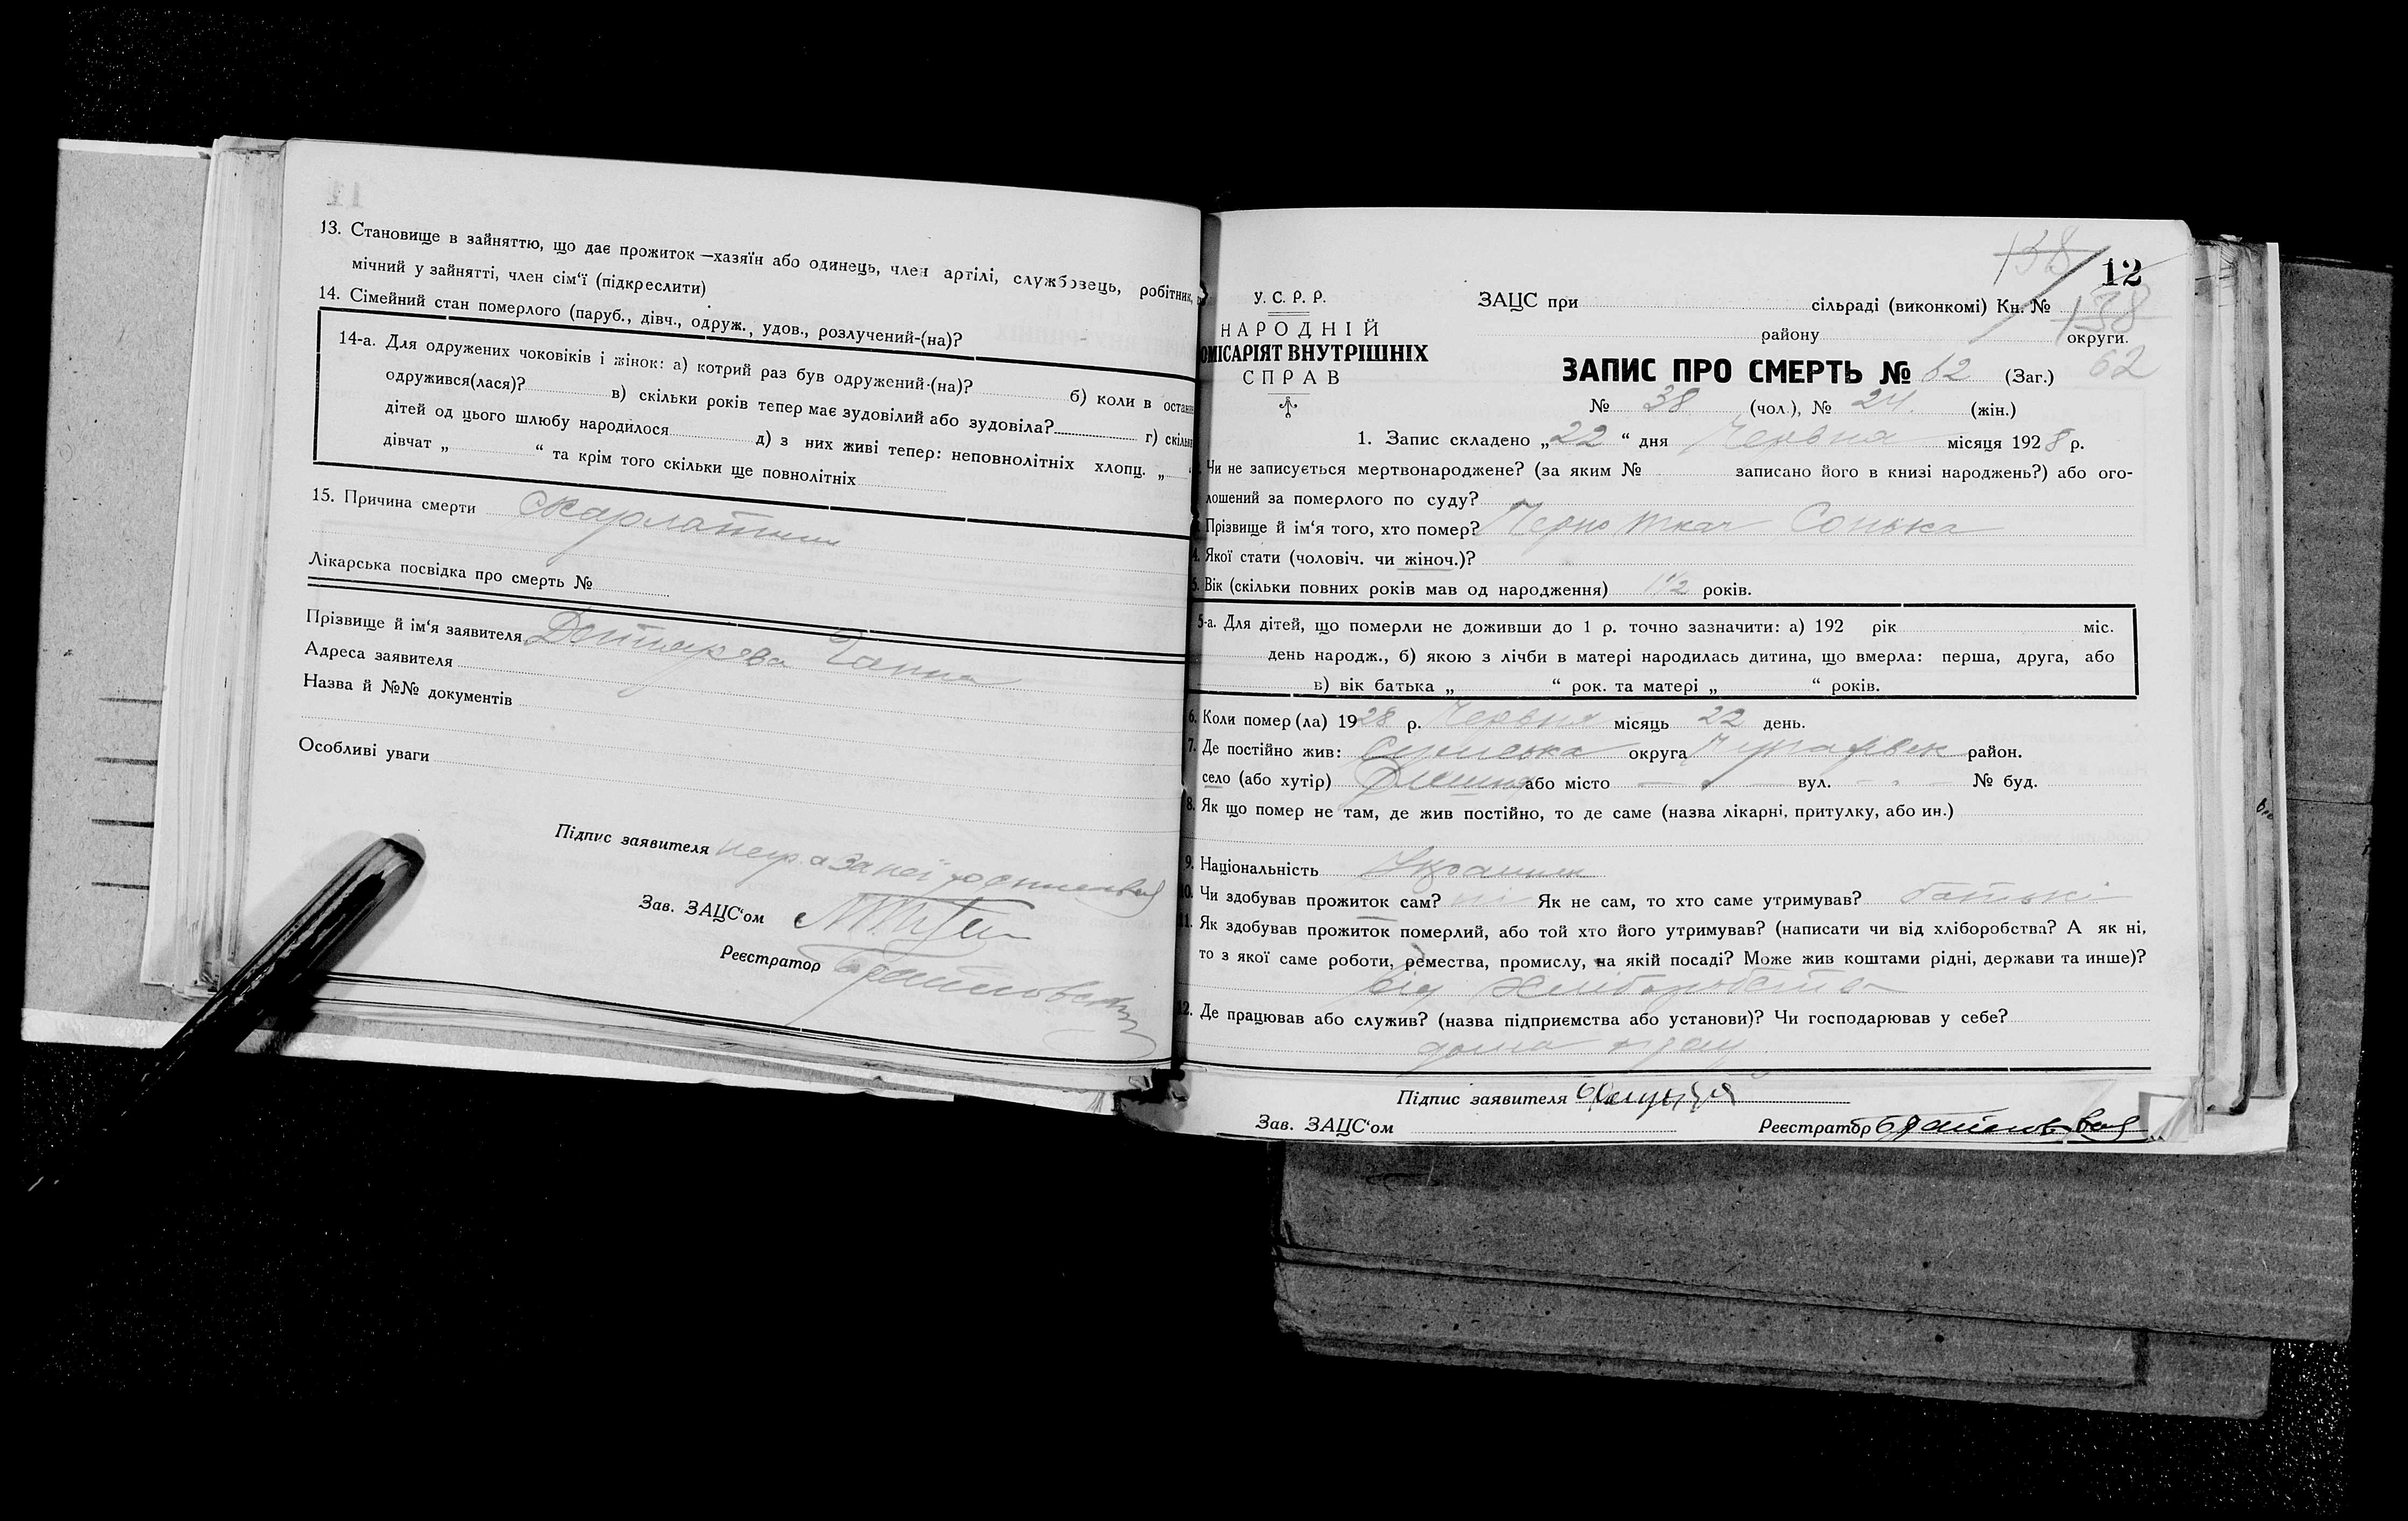 13. Становище в зайняттю, що дає прожиток —хазяїн або одинець, член артілі, службовець, робітник,
мічний у зайнятті, член сім‘ї (підкреслити)
14. Сімейний стан померлого (паруб., дівч., одруж., удов., розлучений-(на)?
14-а. Для одружених чоковіків і жінок: а) котрий раз був одружений-(на)? б) коли в останн
одружився(лася)? в) скільки років тепер має зудовілий або зудовіла? г) скільк
дітей од цього шлюбу народилося д) з них живі тепер: неповнолітніх хлопц. „
дівчат „ “ та крім того скільки ще повнолітніх
15. Причина смерти Скарлатина
Лікарська посвідка про смерть №
Прізвище й ім‘я заявителя Ганна
Адреса заявителя
Назва й №№ документів
Особливі уваги
Підпис заявителя
Зав. ЗАЦС‘ом
Реєстратор
12
138
У. С. Р. Р.
НАРОДНІЙ
ОМІСАРІЯТ ВНУТРІШНІХ
СПРАВ
ЗАЦС при сільраді (виконкомі) Кн. № 138
району округи.
ЗАПИС ПРО СМЕРТЬ № 62 (Заг.) 62
№ 38 (чол.), № 24. (жін.)
1. Запис складено „22“ дня Червня місяця 1928 р.
Чи не записується мертвонароджене? (за яким № записано його в книзі народжень?) або ого-
лошений за померлого по суду?
Прізвище й ім‘я того, хто помер? Чорноткач Сонька
4. Якої стати (чоловіч. чи жіноч.)?
5. Вік (скільки повних років мав од народження) 1 1/2 років.
5-а. Для дітей, що померли не доживши до 1 р. точно зазначити: а) 192 рік міс.
день народж., б) якою з лічби в матері народилась дитина, що вмерла: перша, друга, або
в) вік батька „ “ рок. та матері „ “ років.
6. Коли помер (ла) 1928 р. Червня місяць 22 день.
7. Де постійно жив: округа район.
село (або хутір) або місто — вул. — № буд.
8. Як що помер не там, де жив постійно, то де саме (назва лікарні, притулку, або ин.)
9. Національність
10. Чи здобував прожиток сам? ні Як не сам, то хто саме утримував? батькі
11. Як здобував прожиток померлий, або той хто його утримував? (написати чи від хліборобства? А як ні,
то з якої саме роботи, ремества, промислу, на якій посаді? Може жив коштами рідні, держави та инше)?
від хліборобства
12. Де працював або служив? (назва підприємства або установи)? Чи господарював у себе?
дома
Підпис заявителя
Зав. ЗАЦС‘ом Реєстратор